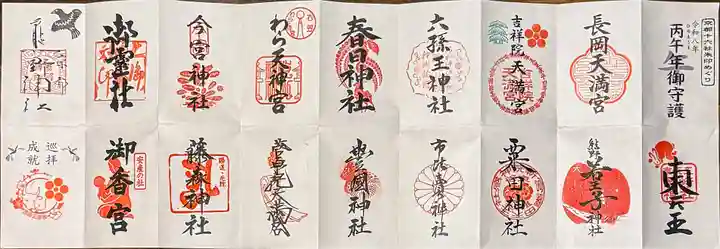 京都十六社朱印めぐり
令和八年
丙午年御守護
長岡天満宮
吉祥院
天満宮
六孫王神社
春日神社
わら天神宮
今宮神社
御霊社
東天王
熊野若王子神社
粟田神社
市比賣神社
豊國神社
藤森神社
安産の社
御香宮
巡拝
成就